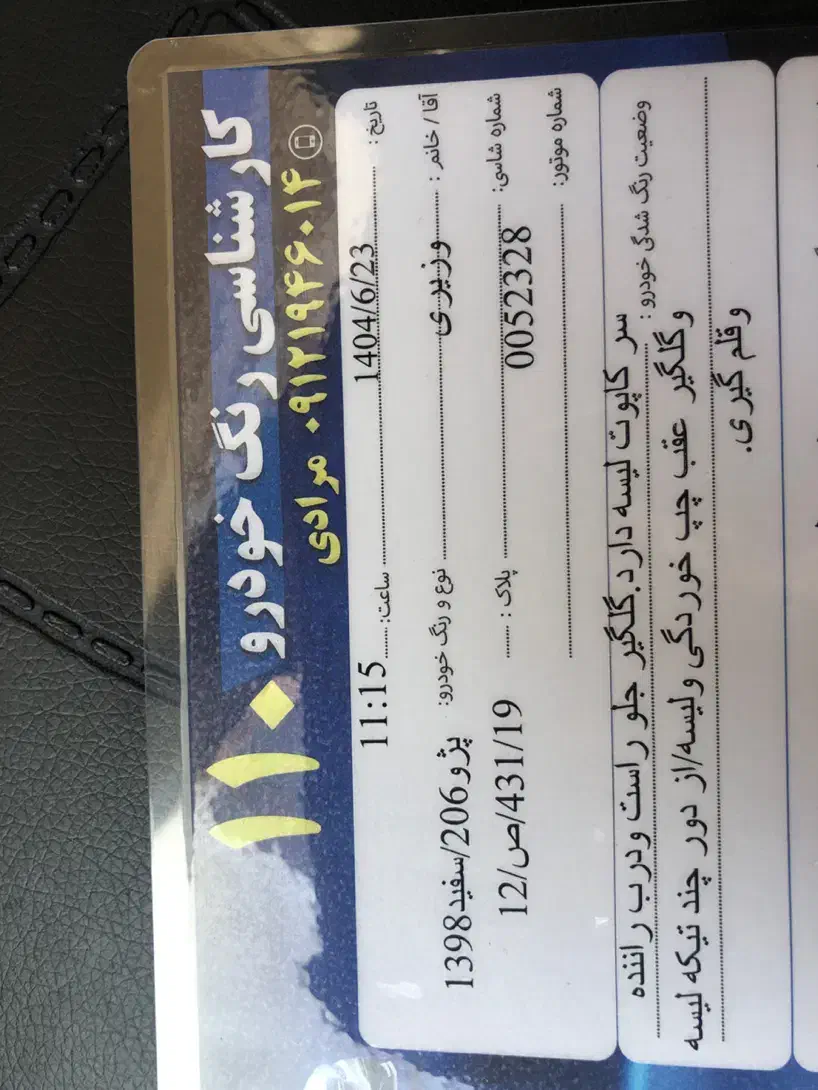 کارشناسی رنگ خودرو ۱۱۰
۰۹۱۲۱۹۴۶۰۱۴ مرادی
تاریخ: 1404/6/23 ساعت: 11:15
آقا / خانم: وزیری نوع و رنگ خودرو: پژو206/سفید1398
شماره شاسی: 0052328 پلاک: 12/ص/431/19
شماره موتور:
وضعیت رنگ شدگی خودرو:
سر کاپوت لیسه دارد.گلگیر جلو راست ودرب راننده
و گلگیر عقب چپ خوردگی ولیسه/از دور چند تیکه لیسه
و قلم گیری.